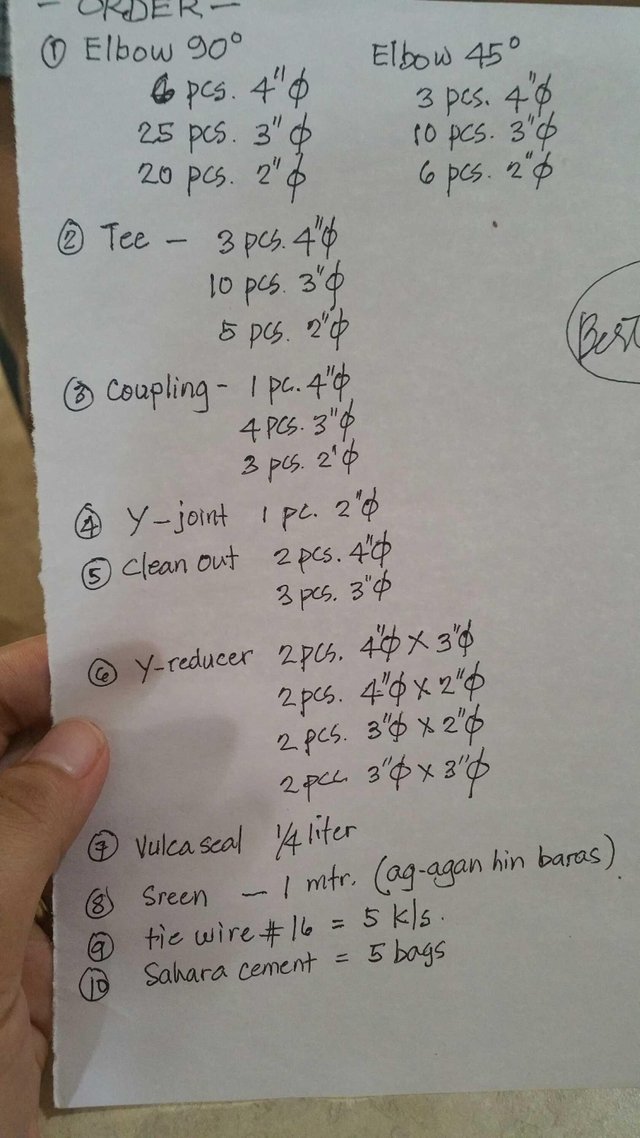 - ORDER -
① Elbow 90° Elbow 45°
6 pcs. 4"ф 3 pcs. 4"ф
25 pcs. 3"ф 10 pcs. 3"ф
20 pcs. 2"ф 6 pcs. 2"ф
② Tee - 3 pcs. 4"ф
10 pcs. 3"ф
5 pcs. 2"ф
Best
③ Coupling - 1 pc. 4"ф
4 pcs. 3"ф
3 pcs. 2"ф
④ Y-joint 1 pc. 2"ф
⑤ Clean out 2 pcs. 4"ф
3 pcs. 3"ф
⑥ Y-reducer 2 pcs. 4"ф x 3"ф
2 pcs. 4"ф x 2"ф
2 pcs. 3"ф x 2"ф
2 pcc 3"ф x 3"ф
⑦ Vulcaseal 1/4 liter
⑧ Sreen - 1 mtr. (ag-agan hin baras)
⑨ tie wire #16 = 5 kls.
⑩ Sahara cement = 5 bags